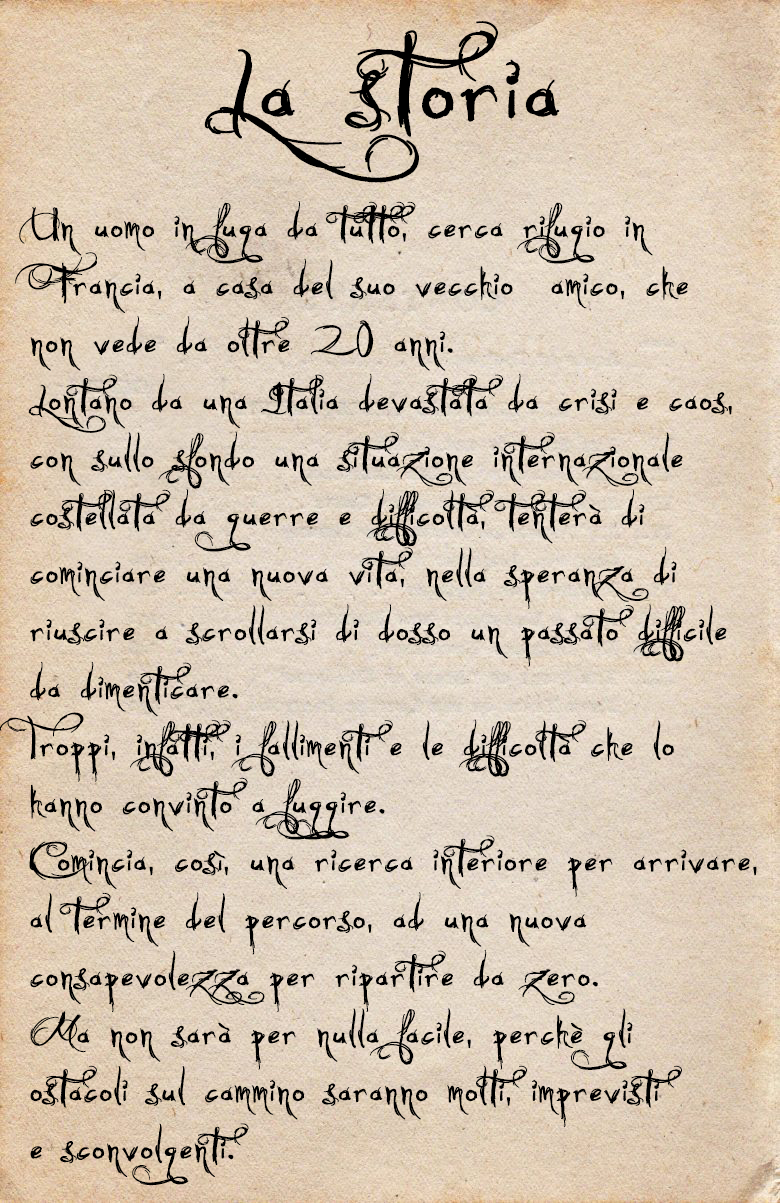 La storia
Un uomo in fuga da tutto, cerca rifugio in
Francia, a casa del suo vecchio amico, che
non vede da oltre 20 anni.
Lontano da una Italia devastata da crisi e caos,
con sullo sfondo una situazione internazionale
costellata da guerre e difficoltà, tenterà di
cominciare una nuova vita, nella speranza di
riuscire a scrollarsi di dosso un passato difficile
da dimenticare.
Troppi, infatti, i fallimenti e le difficoltà che lo
hanno convinto a fuggire.
Comincia, così, una ricerca interiore per arrivare,
al termine del percorso, ad una nuova
consapevolezza per ripartire da zero.
Ma non sarà per nulla facile, perchè gli
ostacoli sul cammino saranno molti, imprevisti
e sconvolgenti.